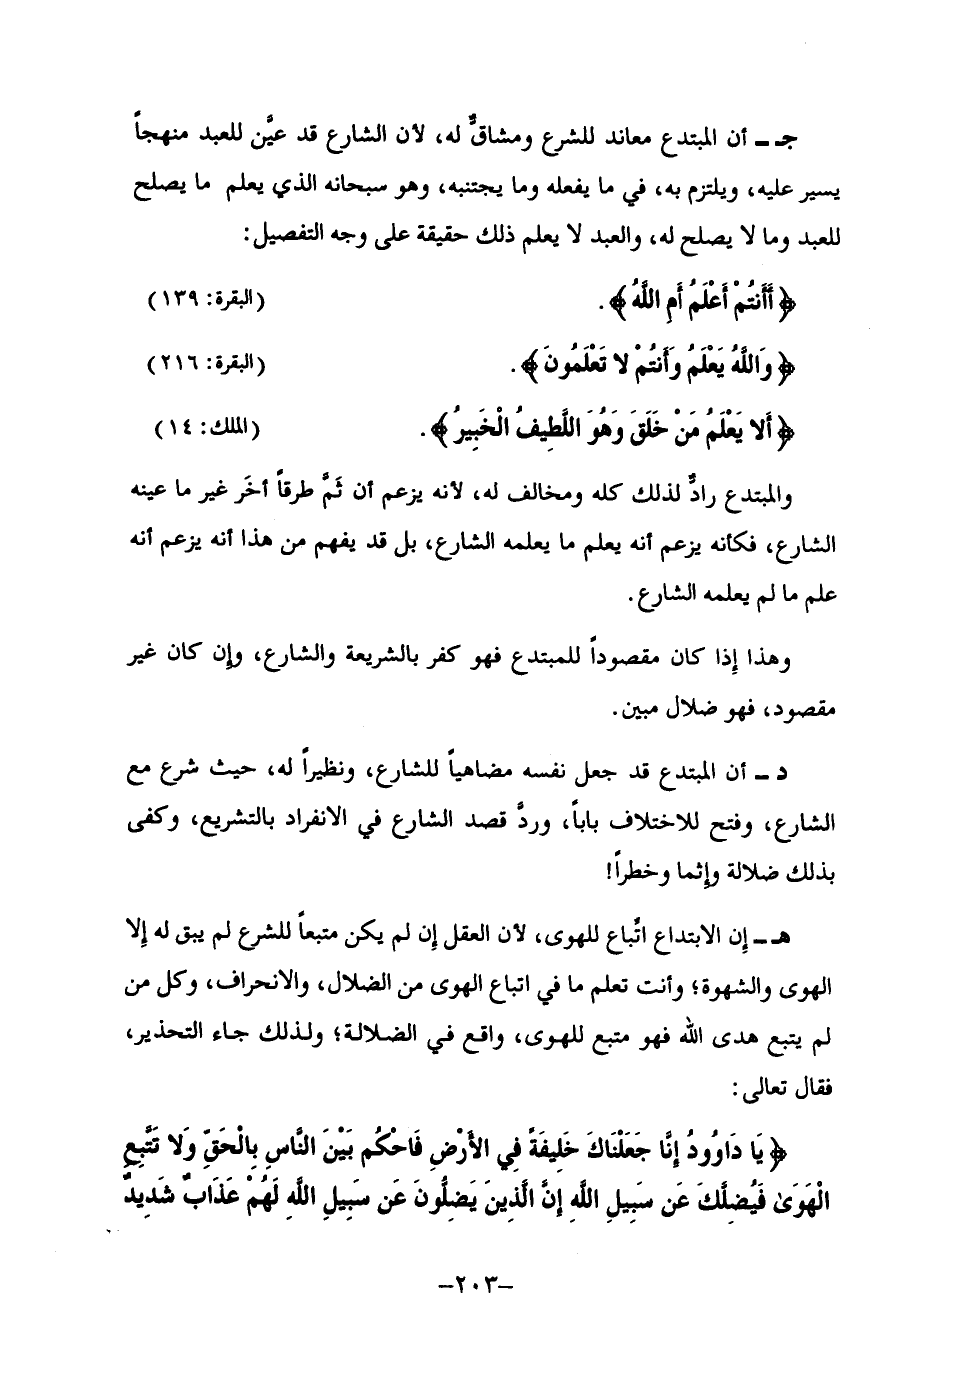 جـ ـ أن المبتدع معاند للشرع ومشاقٌّ له، لأن الشارع قد عيَّن للعبد منهجاً
يسير عليه، ويلتزم به، في ما يفعله وما يجتنبه، وهو سبحانه الذي يعلم ما يصلح
للعبد وما لا يصلح له، والعبد لا يعلم ذلك حقيقة على وجه التفصيل:
﴿أَأَنتُمْ أَعْلَمُ أَمِ اللَّهُ﴾. (البقرة: ١٣٩)
﴿وَاللَّهُ يَعْلَمُ وَأَنتُمْ لا تَعْلَمُونَ﴾. (البقرة: ٢١٦)
﴿أَلا يَعْلَمُ مَنْ خَلَقَ وَهُوَ اللَّطِيفُ الْخَبِيرُ﴾. (الملك: ١٤)
والمبتدع رادٌّ لذلك كله ومخالف له، لأنه يزعم أن ثَمَّ طرقاً أخَر غير ما عينه
الشارع، فكأنه يزعم أنه يعلم ما يعلمه الشارع، بل قد يفهم من هذا أنه يزعم أنه
علم ما لم يعلمه الشارع.
وهذا إذا كان مقصوداً للمبتدع فهو كفر بالشريعة والشارع، وإن كان غير
مقصود، فهو ضلال مبين.
د ـ أن المبتدع قد جعل نفسه مضاهياً للشارع، ونظيراً له، حيث شرع مع
الشارع، وفتح للاختلاف باباً، وردَّ قصد الشارع في الانفراد بالتشريع، وكفى
بذلك ضلالة وإثما وخطراً!
هـ ـ إن الابتداع اتَّباع للهوى، لأن العقل إن لم يكن متبعاً للشرع لم يبق له إلا
الهوى والشهوة؛ وأنت تعلم ما في اتباع الهوى من الضلال، والانحراف، وكل من
لم يتبع هدى الله فهو متبع للهوى، واقع في الضلالة؛ ولذلك جاء التحذير،
فقال تعالى:
﴿يَا دَاوُودُ إِنَّا جَعَلْنَاكَ خَلِيفَةً فِي الأَرْضِ فَاحْكُم بَيْنَ النَّاسِ بِالْحَقِّ وَلا تَتَّبِعِ
الْهَوَىٰ فَيُضِلَّكَ عَن سَبِيلِ اللَّهِ إِنَّ الَّذِينَ يَضِلُّونَ عَن سَبِيلِ اللَّهِ لَهُمْ عَذَابٌ شَدِيدٌ
–٢٠٣–